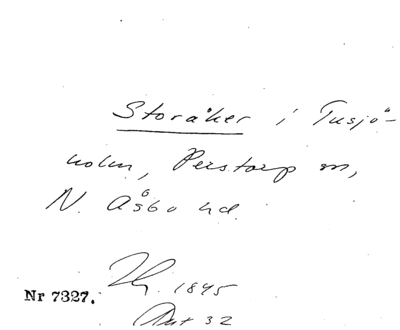 Storåker i Tusjö-
holm, Perstorp sn,
N. Åsbo hd.
1845
Nr 7327.
Akt 32